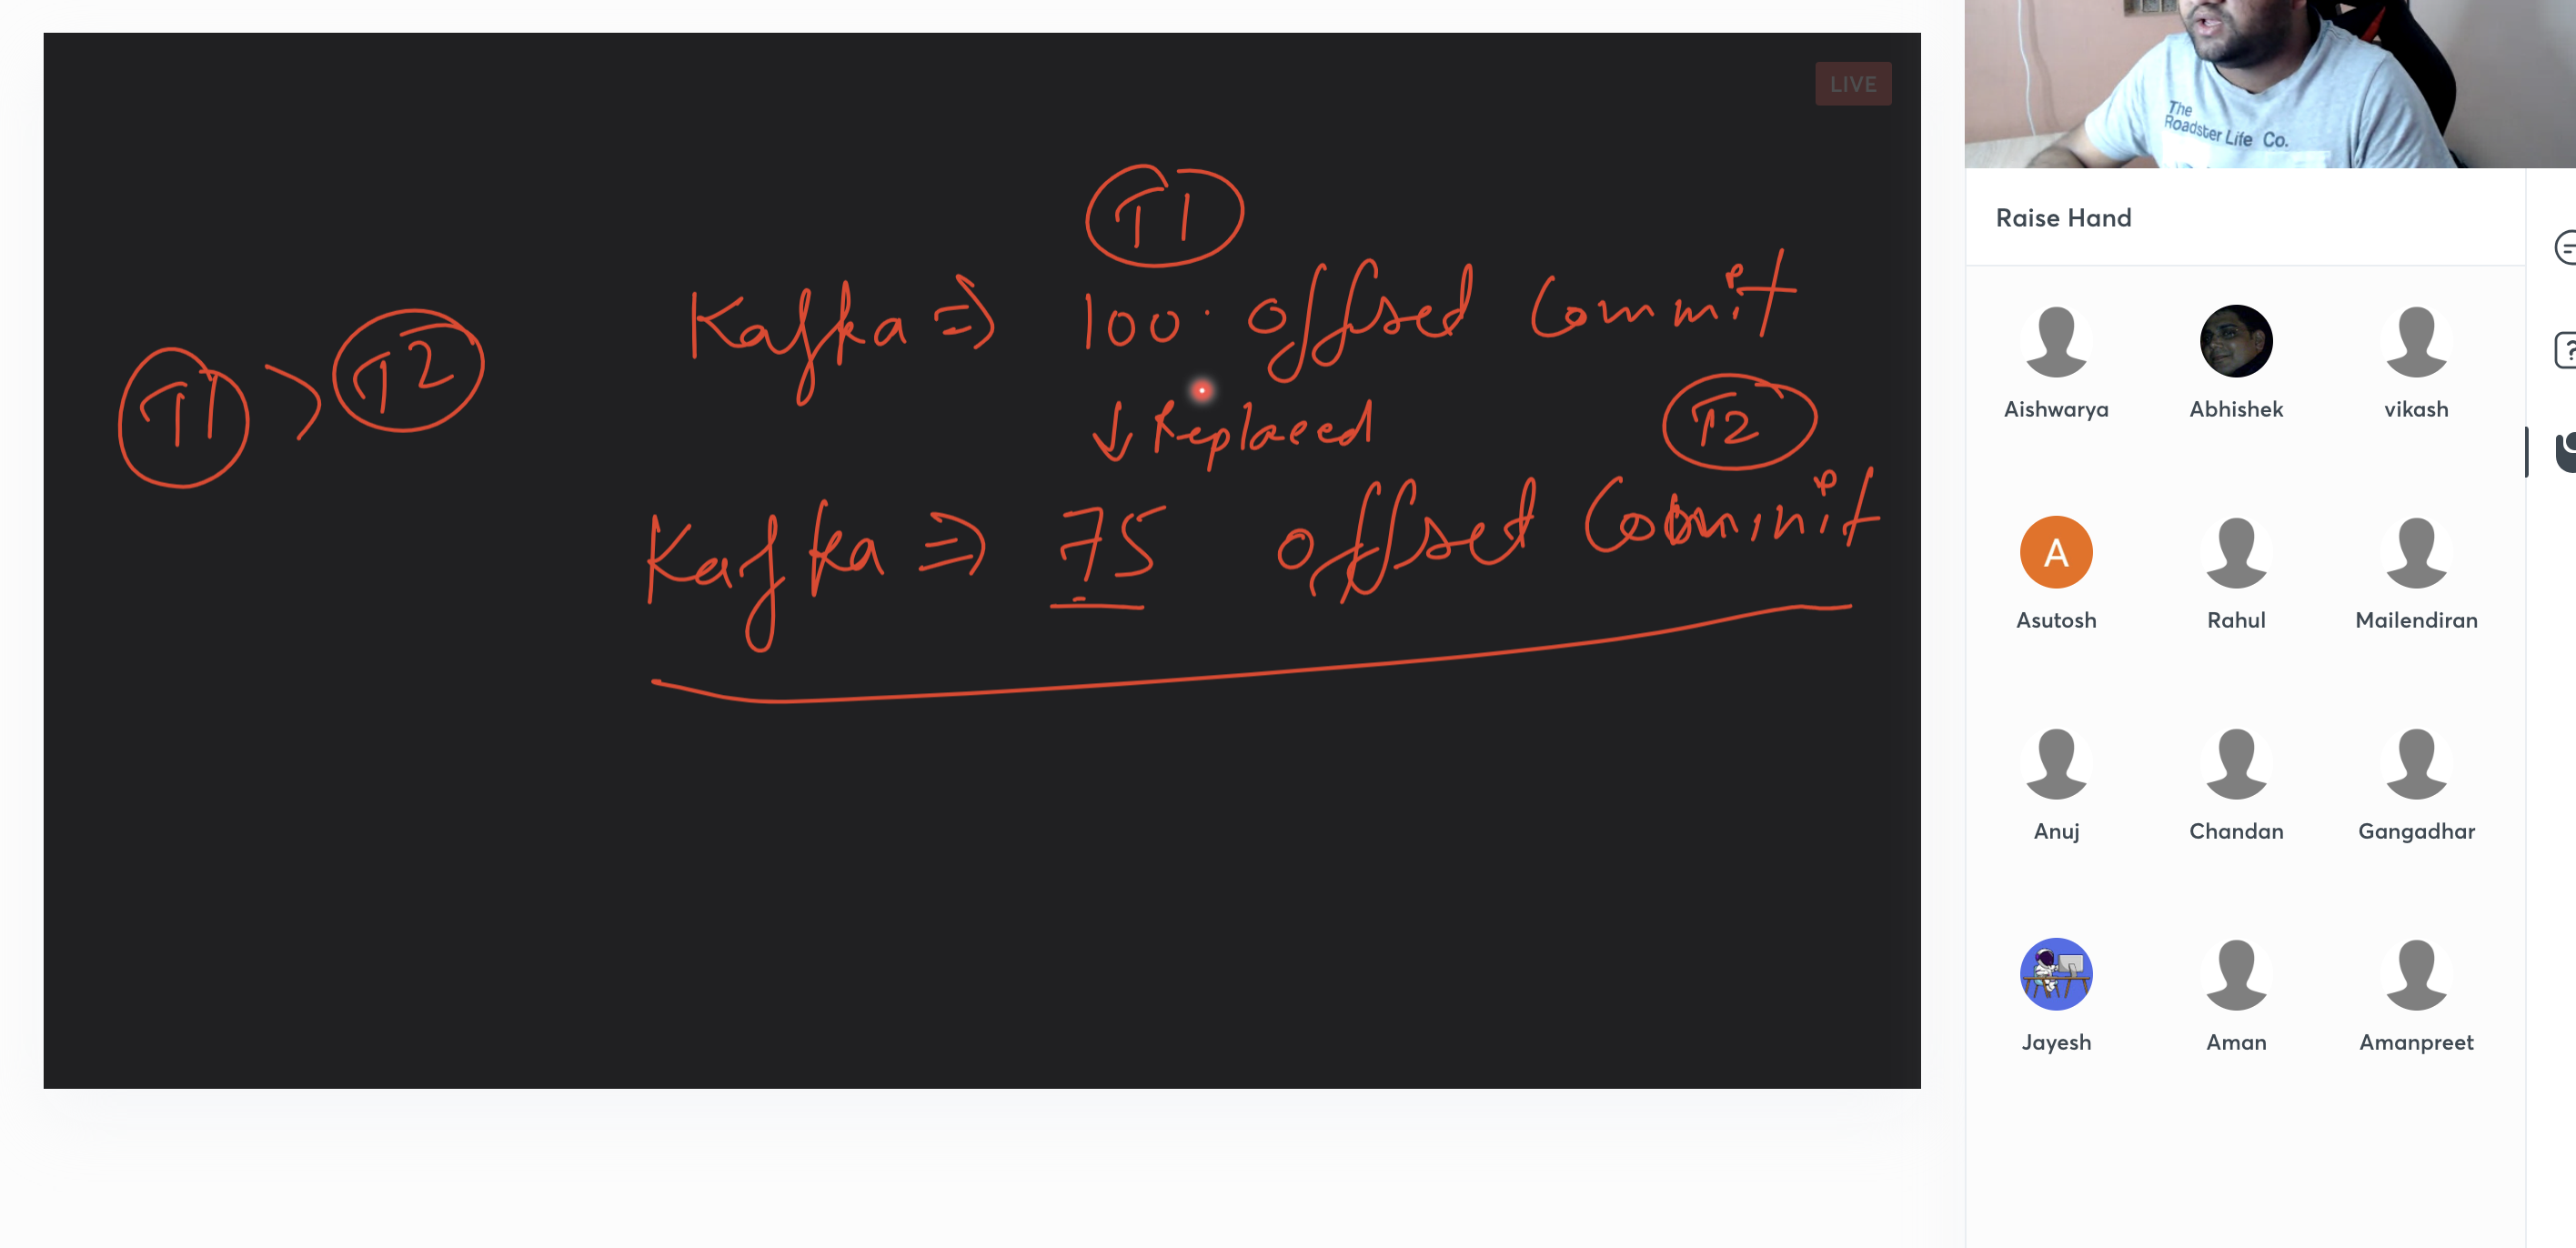 LIVE
T1
Kafka ⇒ 100 offsed Commit
T1 > T2
↓ Replaced
T2
Kafka ⇒ 75 offset Commit
The
Roadster Life Co.
Raise Hand
Aishwarya
Abhishek
vikash
A
Asutosh
Rahul
Mailendiran
Anuj
Chandan
Gangadhar
Jayesh
Aman
Amanpreet
?